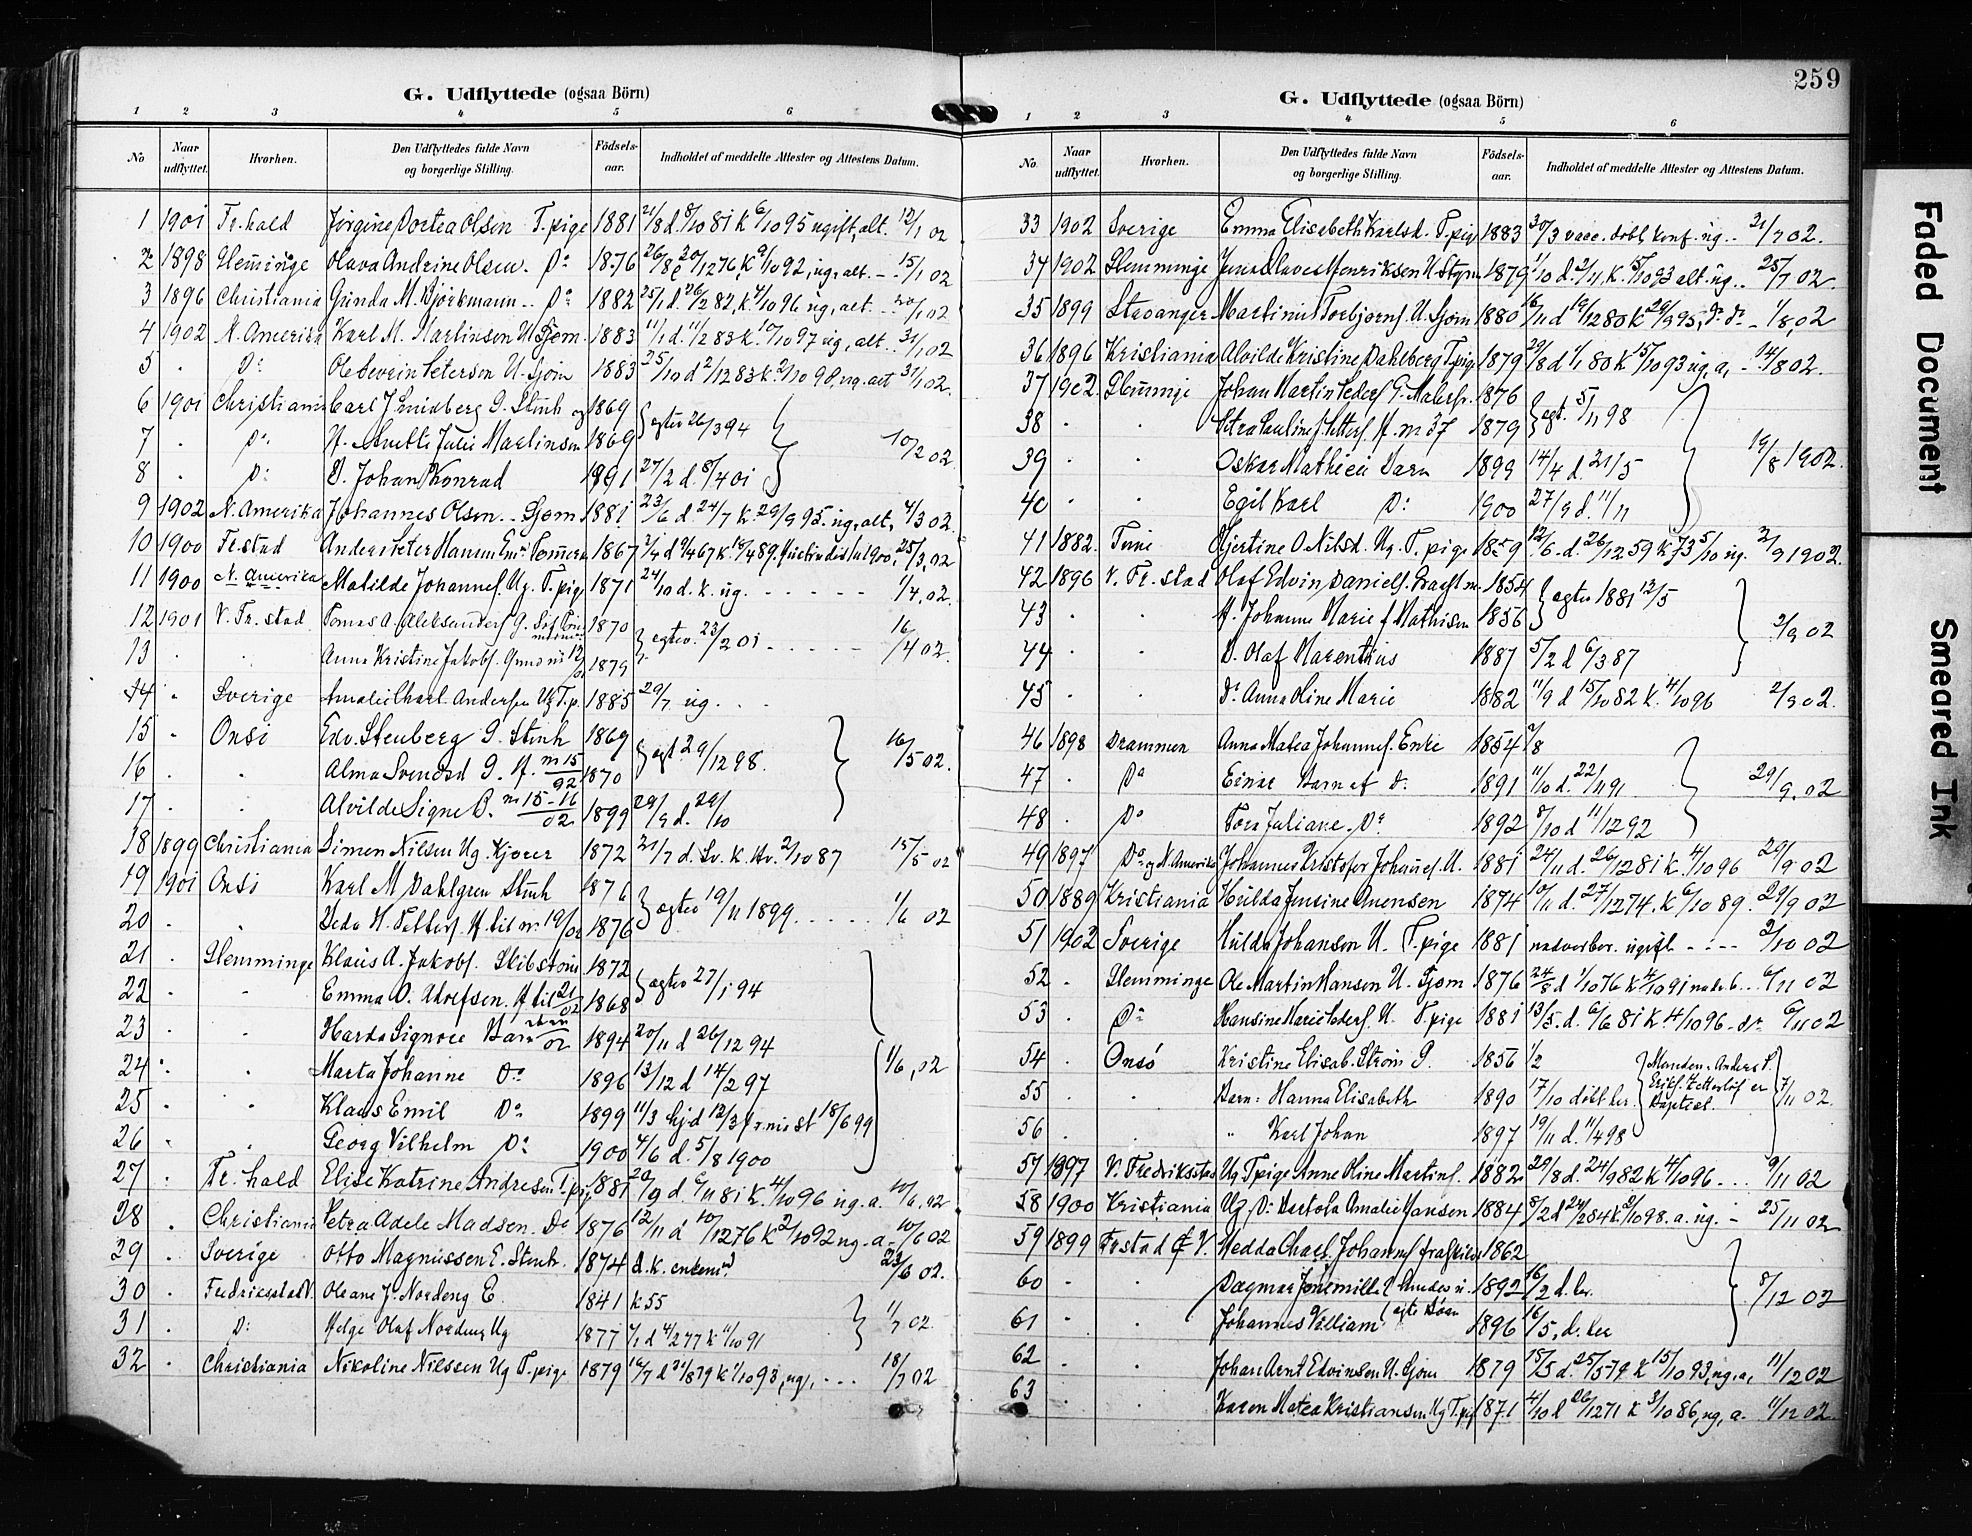 G. Udflyttede (ogsaa Börn)
1 2 3 4 5 6
No Naar udflyttet. Hvorhen. Den Udflyttedes fulde Navn og borgerlige Stilling. Födsels-aar. Indholdet af meddelte Attester og Attestens Datum.
1 1901 Fr.hald Jørgine Dortea Olsen T.pige 1881 21/8 d. 8/10 81 k 6/10 95 ugift, alt. 12/1 02
2 1898 Glemminge Olava Andrine Olsen. Do 1876 26/8 d 20/12 76, k. 9/10 92, ug, alt. - 15/1 02
3 1896 Christiania Gunda M. Bjørkmann.. Do 1882 25/1 d. 26/2 82, k. 4/10 96 ug, alt. .. 20/1 02
4 1902 N. Amerika Karl M. Martinsen U. Sjøm. 1883 11/1 d. 11/2 83 k. 10/10 97 ug, alt. .. 31/1 02
5 . Do Ole Severin Petersen U. Sjøm 1883 25/10 d 2/12 83 k. 2/10 98, ug. alt 31/1 02.
6 1901 Christiania Carl J. Smidberg G. Stenh og 1869 } egtev 26/3 94
7 . Do H. Anette Julie Martinsen 1869 10/2 02
8 . Do B. Johan Konrad 1891 27/2 d. 8/4 01
9 1902 N. Amerika Johannes Olsen .. Sjøm 1881 23/6 d. 24/7 k. 29/9 95. ug, alt, 4/3 02.
10 1900 Fr.stad Anders Peter Hansen Enm Tømmerm 1867 k 18/4 89. 25/3, 02
11 1900 N. Amerika Matilde Johannes. Ug. T.pige 1871 24/10 d. k. ug. - - - - - 1/4, 02.
12 1901 V. Fr. stad Tomas A. Aleksanders. G. 1870 } egtev. 23/2 01 - - - - - 16/4 02.
13 . . Anna Kristine Jakobs. 1879
14 . Sverige Amalie Charl. Anderssen Ug T.p. 1885 29/7 ug. . .
15 . Onsø Edv. Stenberg G. Stenh 1869 } egt. 29/12 98.
16 . . Alma Svendsd G. H. n 15/02 1870 16/5 02.
17 . . Alvilde Signe B. n 15-16/02 1899 29/9 d. 29/10
18 1899 Christiania Simen Nilsen Ug. Kjører 1872 21/7 d. Sv. k. Hv. 2/10 87 15/5 02
19 1901 Onsø Karl M. Dahlgren Stenh 1876 } egtev 19/11 1899. - - - - 1/6 02
20 . . H. Petters. H. til n 19/02 1876
21 . Glemminge Klaus A. Jakobs. Skibstøm 1872 } egtev 27/1 94
22 . . Emma O. Adolfsen. H til 21/02 1868
23 . . Harda Signore Barn 1894 20/11 d 26/12 94
24 . . Marta Johanne Do 1896 13/12 d 14/2 97 1/6, 02
25 . . Klaus Emil Do 1899 11/3 hjd 12/3 fr. n. i st 18/6 99
26 . . Georg Vilhelm Do 1900 4/6 d. 5/8 1900
27 . Fr. hald Elise Katrine Andresen T.pig 1881 20/9 d. 6/11 81 k. 4/10 96 ug. a. 10/6, 02
28 . Christiania Petra Adele Madsen. Do 1876 12/11 d 10/12 76 k 2/10 92 ug. a.. 10/6 02
29 . Sverige Otto Magnussen E. Stenh. 1874 d. k. enkem 23/6 02.
30 . Fredriksstad V. Oleane J. Nordeng E. 1841 k 55
31 . Do Helge Olaf Nordeng Ug 1877 1/1 d 4/2 77 k 11/10 91 1/7 02
32 . Christiania Nikoline Nilssen Ug T.pige 1879 16/7 d 31/8 79 k 1/10 93, ug, . . . 18/7 02
259
G. Udflyttede (ogsaa Börn)
1 2 3 4 5 6
No. Naar udflyttet. Hvorhen. Den Udflyttedes fulde Navn og borgerlige Stilling. Födsels-aar. Indholdet af meddelte Attester og Attestens Datum.
33 1902 Sverige Emma Elisabeth Karlsd. T.pig 1883 30/3 vacc. døbt, konf. ug. .. 21/7 02.
34 1902 Glemminge Jens Olaves Henriksen U. Styrm 1879 1/10 d. 2/11 k. 15/10 93 alt. ug. .. 25/7 02.
35 1899 Stavanger Martinius Torbjørns. U. Sjøm 1880 16/11 d 19/12 80 k 29/9 95, Do Do - 1/8, 02
36 1896 Kristiania Alvilde Kristine Dahlberg T.pige 1879 29/8 d. 1/1 80 k 15/10 93 ug, a, - 14/8 02.
37 1902. Glemminge Johan Martin Peders. G. Malersv. 1876 } egt. 5/11 98
38 . . Petra Pauline f. Petters. H. n 37 1879
39 . . Oskar Mathieu Barn 1899 14/4 d. 21/5 19/8 1902.
40 . . Egil Karl Do 1900 27/9 d. 11/11
41 1882. Tune Hjertine O. Nilsd. Ug. T.pige 1859 12/6. d. 26/12 59 k 73 5/10 ug. 2/9 1902.
42 1896 V. Fr. stad Olaf Edvin Daniels. 1854 } egtev 1881 12/5
43 . . H. Johanne Marie f. Mathisen 1856 2/9 02
44 . . B. Olaf Marentius 1887 5/2 d 6/3 87
45 . . Do Anna Oline Marie 1882 11/9 d 15/10 82 k. 4/10 96 2/9 02.
46 1898 Drammen Anna Matea Johannes. Enke 1854 7/8
47 . Do Einar Barn af Do 1891 11/10 d. 22/11 91 29/9. 02
48 . Do Tora Juliane. Do 1892 8/10 d 11/12 92
49 1897 Do og N. Amerika Johannes Kristofer Johannes. U. 1881 24/11 d. 26/12 81 k. 4/10 96 29/9 02
50 1889 Kristiania Hulda Jensine Anensen 1874 10/11 d. 27/12 74. k 6/10 89. 29/9 02
51 1902 Sverige Hulda Johansen U. T.pige 1881 nadverber. ugift - . - - 2/10 02
52 . Glemminge Ole Martin Hansen U. Sjøm 1876 24/8 d 1/10 76 k 4/10 91 nadv.b. .. 6/11 02
53 . Do Hansine Marie Peders. U. T.pige 1881 13/5. d. 6/6 81 k 4/10 96 - Do 6/11 02
54 . Onsø Kristine Elisab. Strøm G. 1856 1/2 { Manden. Anders P. Eriks. Zetterløf er Baptist.
55 . . Barn: Hanna Elisabeth 1890 17/10 døbt ber. 7/11 02.
56 . . " Karl Johan 1897 19/11 d. 11/4 98
57 1897 V. Fredriksstad Ug T.pige Anne Oline Martins. 1882 29/8 d. 24/9 82 k 4/10 96 . . . 9/11 02
58 1900 Kristiania Ug. Do Bertola Amalie Hansen 1884 8/2 d 24/2 84 k. 2/10 98. a. ug. - 25/11 02
59 1899 Fr.stad V. Hedda Charl. Johannes. fraskilt 1862
60 . . Dagmar Jonemille } Hendes u. egte Børn 1892 16/2 d. ber. 8/12 02
61 . . Johannes Villiam 1896 16/5, d. ber
62 . . Johan Arnt Edvinsen U. Sjøm 1879 15/5 d. 25/5 79 k 15/10 93, ug. a, 11/12 02
63 . . Karen Matea Kristiansen Ug T.pig 1871 4/10 d 26/12 71 k 3/10 86, ug, a. 11/12 02.
Faded Document
Smeared Ink